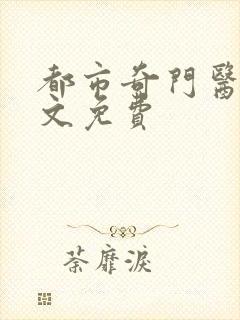 都市奇門醫
文免費
荼靡淚